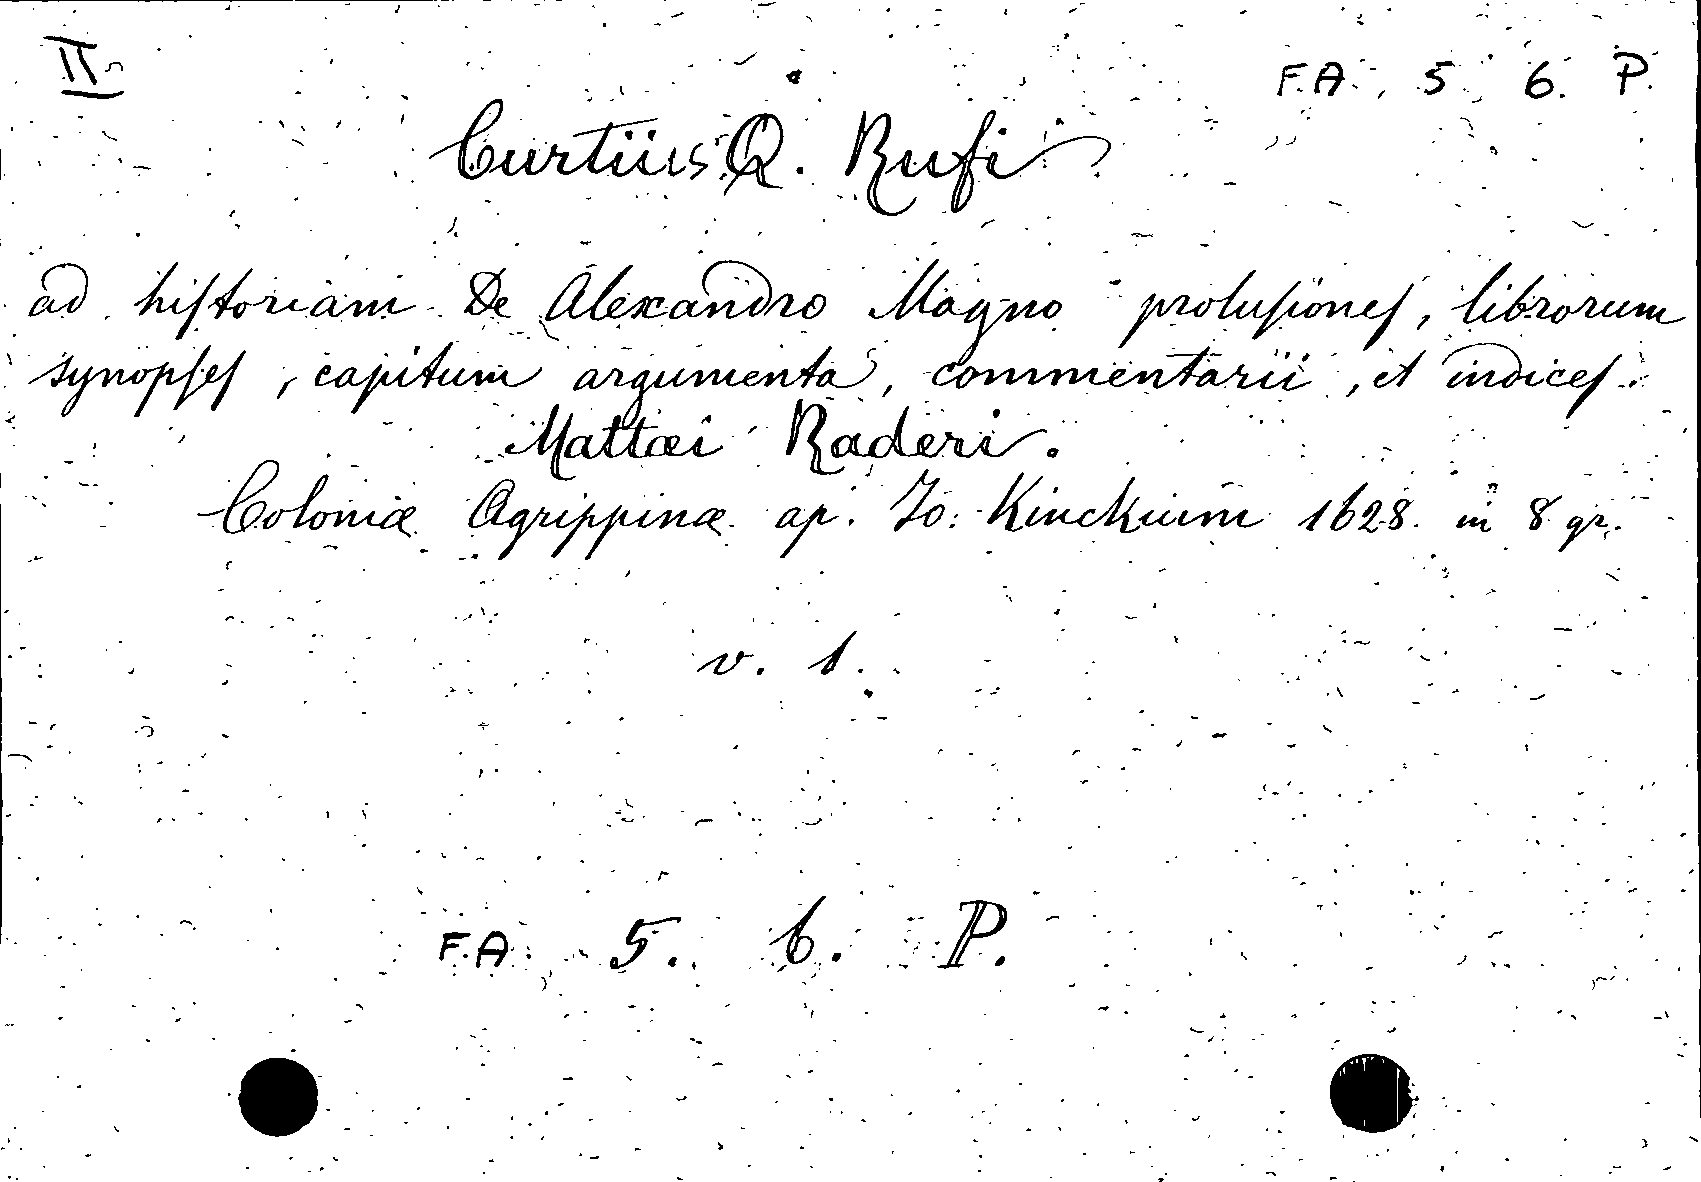 II
F.A. 5 6. P.
Curtius Q. Rufi
ad hiſtoriam De Alexandro Magno proluſioneſ, librorum
synopſeſ, capitum argumenta, commentarii, et indiceſ.
Mattæi Raderi.
Coloniæ Agrippinæ ap. Jo: Kinckium 1628. in 8 gr.
v. 1.
F.A. 5. 6. P.